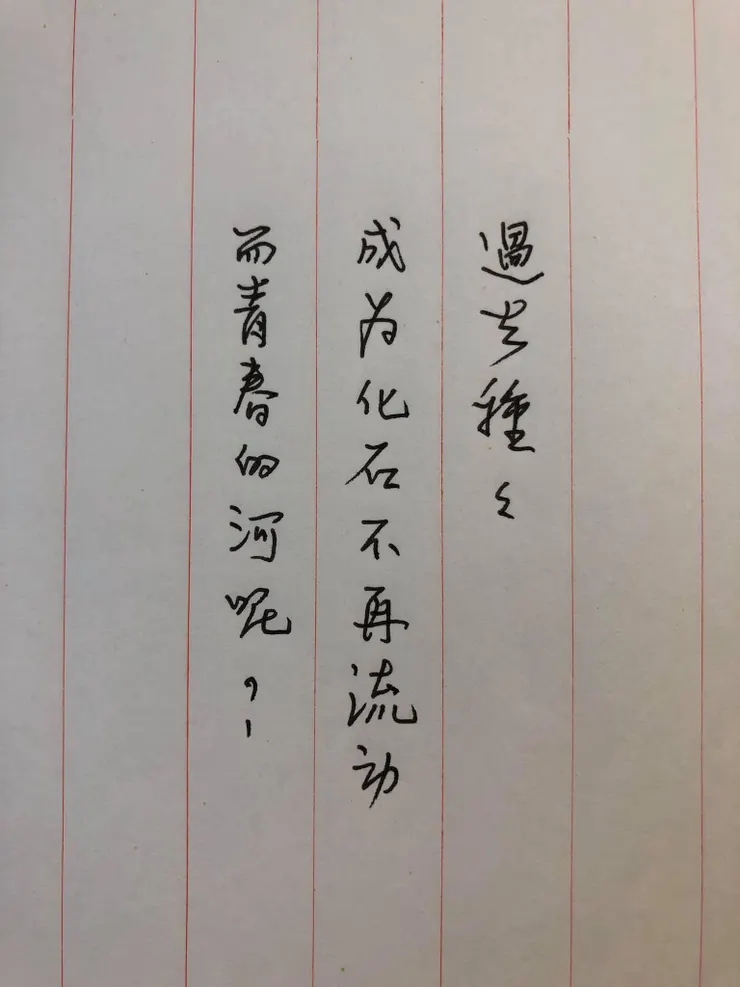 過去種々
成为化石不再流动
而青春的河呢？